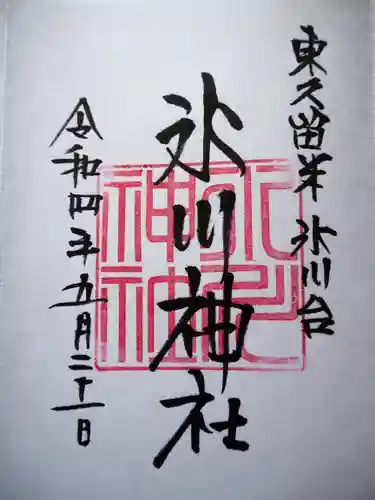 東久留米 氷川台
氷川神社
令和四年九月二十一日
氷川
神社